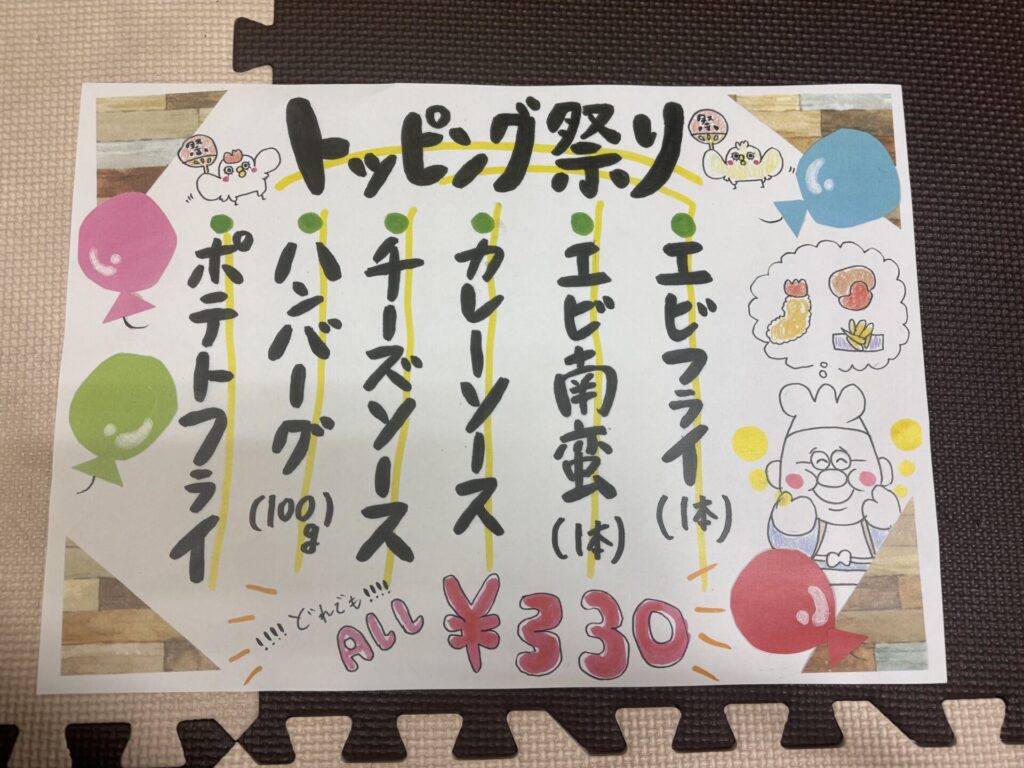 トッピング祭り
祭
祭
エビフライ(1本)
エビ南蛮(1本)
カレーソース
チーズソース
ハンバーグ(100g)
ポテトフライ
!!!!どれでも!!!!
ALL ¥330